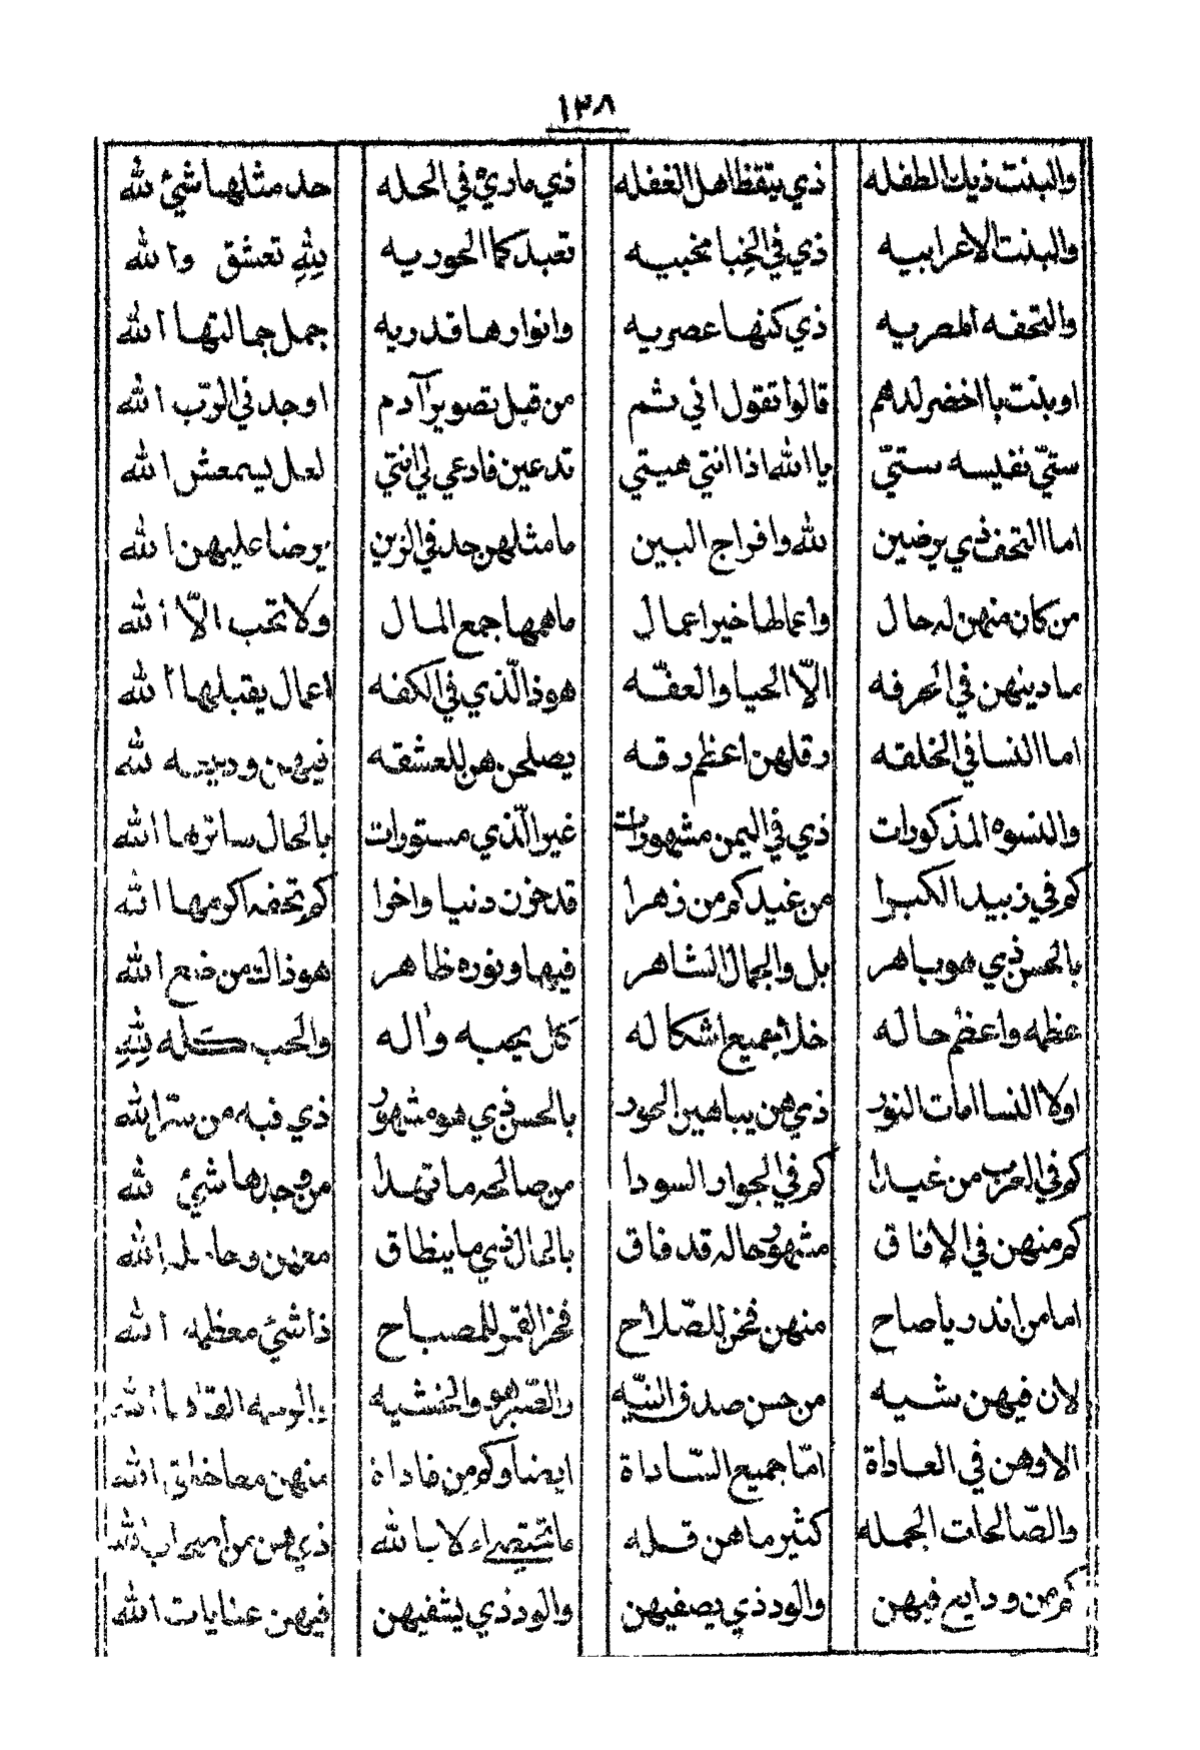 ١٣٨
والبنت ذيك الطفله ذي يتقظ اهل الغفله ذي ماريْ في الحله حد مثلها شيْ لله
والبنت الاعرابيه ذي في الخبا مخبيه تعبد كما الحوريه لِلهِ تعشق والله
والتحفه المصريه ذي كنها عصريه وانوارها قدريه جمل جمالتها الله
او بنت با اخضر لدهم قالوا تقول اني شم من قبل تصوير آدم اوجد في الرتب الله
ستيّ نفيسه ستيّ يا الله اذا انتي هيتي تدعين فادعي لي انتي لعل يسمعش الله
اما التحف ذي يرضين لله وافراج البين ما مثلهن حد في الزين يرضا عليهن الله
من كان منهن له حال واعمالها خير اعمال ما همها جمع المال ولا تحب الاّ الله
ما دينهن في الحرفه الاّ الحيا والعفّه هو ذا الّذي في الكفه اعمال يقبلها الله
اما النسا في الخلقه وقلهن اعظم رقه يصلحن هن للعشقه فيهن وديعه لله
والنسوه المذكورات ذي في اليمن مشهورات غير الّذي مستورات بالحال ساترها الله
كم في زبيد الكبرا من غيد كم من زهرا قد حزن دنيا واخرا كم تحفه اكرمها الله
بالحسن ذي هو باهر بل والجمال الشاهر فيها ونوره ظاهر هو ذاك من صنع الله
عظمه واعظم حاله خلا جميع اشكاله كل يحبه واله والحب كله لِلهِ
اولا النسا امات النور ذي هن يباهين الحور بالحسن ذي هو مشهور ذي فيه من سرّ الله
كم في العرب من غيدا كم في الجوار السودا من صالحه ما تهدا من وجدها شيْ لله
كم منهن في الافاق مشهور حاله قد فاق بالحال ذي ما ينطاق معهن وحامله الله
اما من اندر يا صاح منهن فخن للصّلاح فخر القمر للمصباح ذا شيْ معظمه الله
لان فيهن شيه من حسن صدق النيّه والصّبر هو والخشيه
الا وهن في العاداة امّا جميع السّاداة ايضا وكم من قاداة منهن الله
والصّالحات الجمله كثير ما هن قله ما تحتصراء لا بالله ذي هن من الله
كم من ودايع فيهن والود ذي يصفيهن والود ذي يشفيهن فيهن عنايات الله